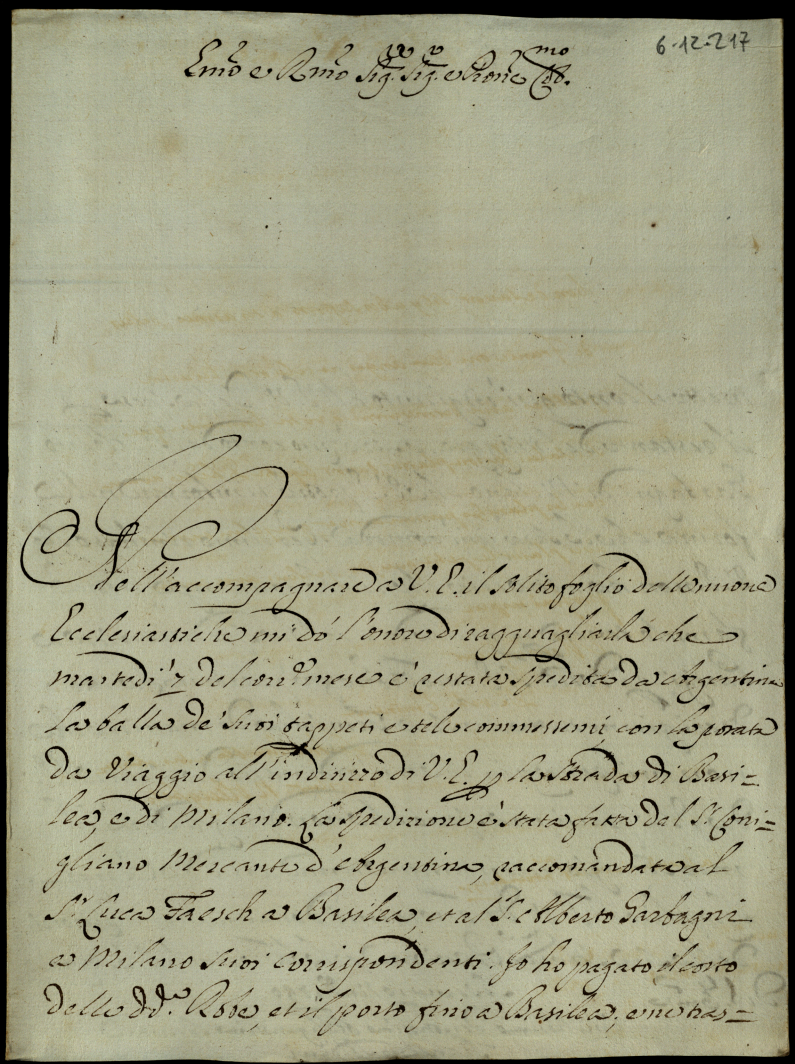 6-12-217
Em̃o e Rm̃o Sig.r Sig.r e Pron̄e Col.mo
Nell'accompagnare a V. E. il solito foglio delle nuove
Ecclesiastiche mi dò l'onore di ragguagliarla che
martedì 7 del corr.e mese è restata spedita da Argentina
la balla de' suoi tappeti e tele commessemi, con la posata
da Viaggio all'indirizzo di V. E. p la strada di Basi=
lea, e di Milano. La spedizione è stata fatta dal S.r Coni=
gliano Mercante d'Argentina, raccomandata al
S.r Luca Faesch a Basilea, et al S.r Alberto Garbagni
a Milano suoi corrispondenti. Io ho pagato il costo
delle dd.e Robbe, et il porto fino a Basilea, e ne tras=